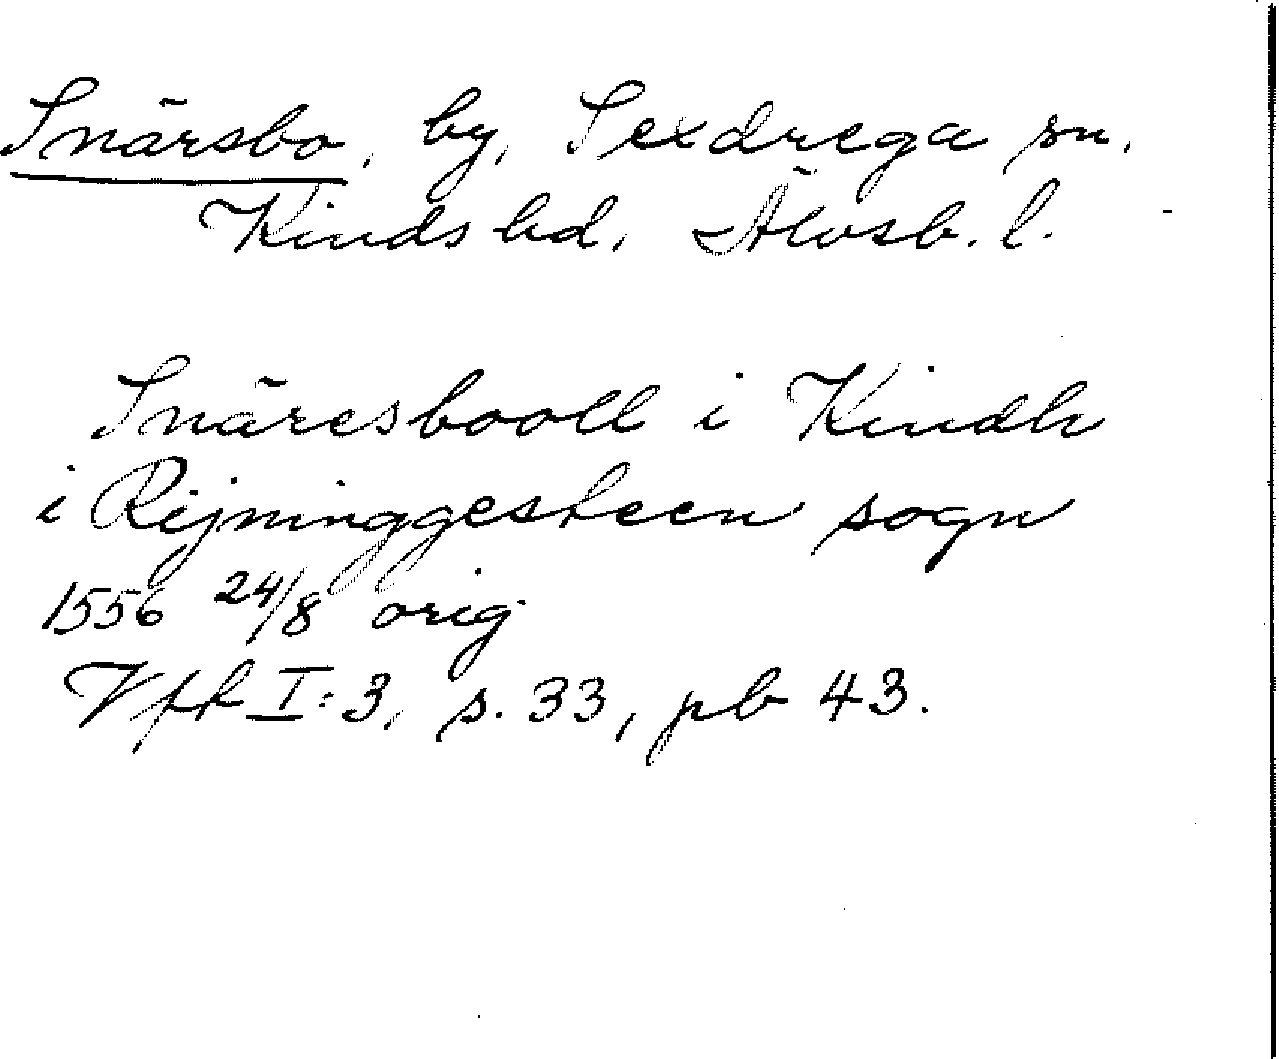 Snärsbo, by, Sexdrega sn.
Kinds hd. Älvsb. l.
Snäresbooll i Kindh
i Rijninggesteen sogn
1556 24/8 orig
Vfk I:3, s. 33, pb 43.